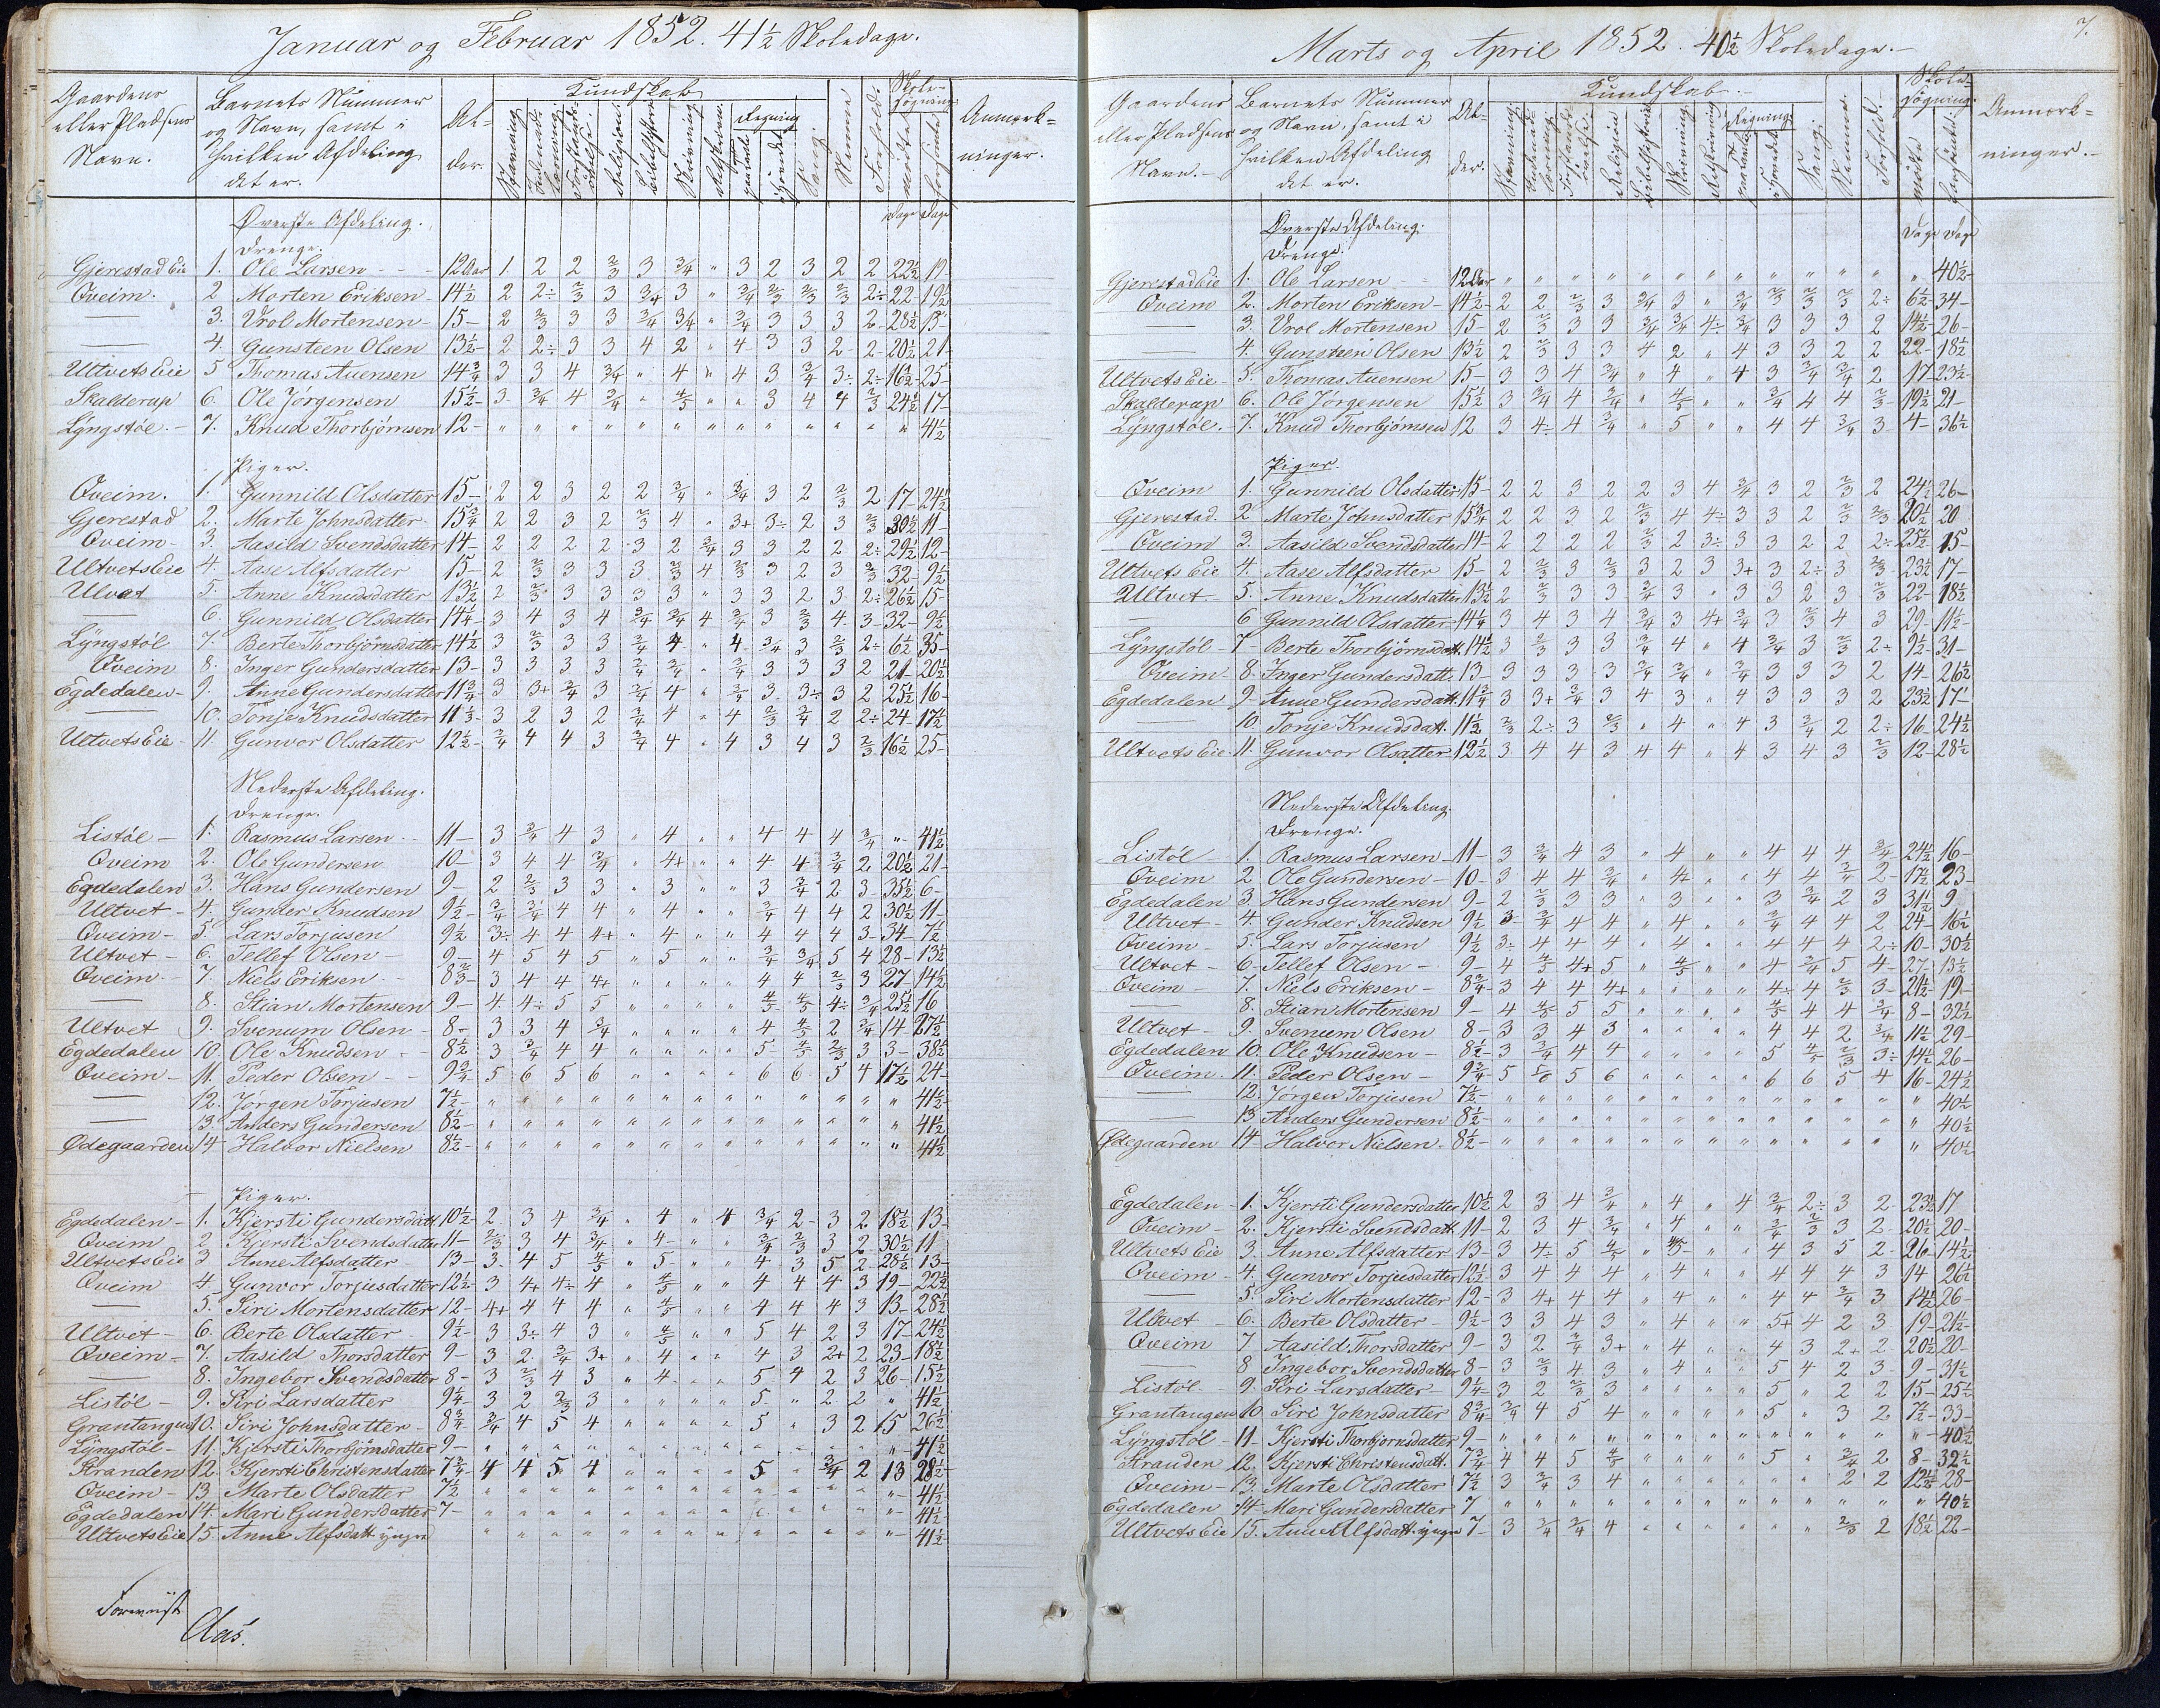 Januar og Februar 1852. 41½ Skoledage.
Gaardens eller Pladsens Navn.
Barnets Nummer og Navn, samt i hvilken Afdeling det er.
Alder.
Kundskab
Religion
Bibelhistorie
Skrivning
Retskrivn.
Regning
Sang
Nemme
Forhold.
Skolesøgning
mødte
forsømte
Anmærkninger.
Øverste Afdeling.
Dage Dage
Drenge.
Gjerestad Eie 1. Ole Larsen 12 Aar 1. 2 2 2/3 3 3/4 " 3 2 3 2 2 22½ 19
Øveim. 2 Morten Eriksen 14½ 2 2÷ 2/3 3 3/4 3 " 3/4 2/3 2/3 2/3 2÷ 22 19½
— 3. Vrol Mortensen 15 2 2/3 3 3 3/4 3/4 " 3/4 3 3 3 2 28½ 13
— 4. Gunsteen Olsen 13½ 2 2÷ 3 3 4 2 " 4 3 3 2 2 20½ 21
Ultvets Eie 5 Thomas Auensen 14¾ 3 3 4 3/4 " 4 " 4 3 3/4 3÷ 2÷ 16½ 25
Skalderup 6. Ole Jørgensen 15½ 3 3/4 4 3/4 " 4/5 " " 3 4 4 2/3 24½ 17
Lyngstøl 7. Knud Thorbjørnsen 12 " " " " " " " " " " " " " 41½
Piger.
Øveim. 1. Gunnild Olsdatter 15 2 2 3 2 2 3/4 " 3/4 3 2 2/3 2 17 24½
Gjerestad 2. Marte Johnsdatter 15¾ 2 2 3 2 2/3 4 " 3+ 3÷ 2 3 2/3 30½ 11
Øveim 3. Aasild Svendsdatter 14 2 2 2 2 3 2 3/4 3 3 2 2 2÷ 29½ 12
Ultvets Eie 4. Aase Alfsdatter 15 2 2/3 3 3 3 2/3 4 2/3 3 2 3 2/3 32 9½
Ulvet 5. Anne Knudsdatter 13½ 2 2/3 3 3 3 3 " 3 3 2 3 2÷ 26½ 15
6. Gunnild Olsdatter 14¼ 3 4 3 4 3/4 3/4 4 3/4 3 2/3 4 3 32 9½
Lyngstøl 7 Berte Thorbjørnsdatter 14½ 3 2/3 3 3 3/4 4 " 4 3/4 3 2/3 2÷ 6½ 35
Øveim 8. Inger Gundersdatter 13 3 3 3 3 3/4 3/4 " 3/4 3 3 3 2 21 20½
Egdedalen 9. Anne Gundersdatter 11¾ 3 3+ 3/4 3 3/4 4 " 3/4 3 3÷ 3 2 25½ 16
— 10. Tonje Knudsdatter 11⅓ 3 2 3 2 3/4 4 " 4 2/3 3/4 2 2÷ 24 17½
Ultvets Eie 11. Gunvor Olsdatter 12½ 3/4 4 4 3 3/4 4 " 4 3 4 3 2/3 16½ 25
Nederste Afdeling.
Drenge.
Listøl 1. Rasmus Larsen 11 3 3/4 4 3 " 4 " " 4 4 4 3/4 " 41½
Øveim 2. Ole Gundersen 10 3 4 4 3/4 " 4+ " " 4 4 3/4 2 20½ 21
Egdedalen 3. Hans Gundersen 9 2 2/3 3 3 " 3 " " 3 3/4 2 3 35½ 6
Ultvet 4. Gunder Knudsen 9½ 3/4 3/4 4 4 " 4 " " 3/4 4 4 2 30½ 11
Øveim 5. Lars Torjusen 9½ 3÷ 4 4 4+ " 4 " " 4 4 4 3 34 7½
Ultvet 6. Tellef Olsen 9 4 5 4 5 " 5 " " 3/4 3/4 5 4 28 13½
Øveim 7. Niels Eriksen 8⅔ 3 4 4 4+ " " " " 4 4 2/3 3 27 14½
— 8. Stian Mortensen 9 4 4÷ 5 5 " " " " 4/5 4/5 4÷ 3/4 25½ 16
Ultvet 9. Svenum Olsen 8 3 3 4 3/4 " " " " 4 4/5 2 3/4 14 27½
Egdedalen 10. Ole Knudsen 8½ 3 3/4 4 4 " " " " 5 4/5 2/3 3 3 38½
Øveim 11. Peder Olsen 9¾ 5 6 5 6 " " " " 6 6 5 4 17½ 24
— 12. Jørgen Torjusen 7½ " " " " " " " " " " " " " 41½
— 13. Anders Gundersen 8½ " " " " " " " " " " " " " 41½
Ødegaarden 14 Halvor Nielsen 8½ " " " " " " " " " " " " " 41½
Piger.
Egdedalen 1. Kjersti Gundersdatt 10½ 2 3 4 3/4 " 4 " 4 3/4 2 3 2 18½ 13
Øveim 2 Kjersti Svendsdatter 11 2/3 3 4 3/4 " 4 " " 3/4 2/3 3 2 30½ 11
Ultvets Eie 3 Anne Alfsdatter 13 3 4 5 4/5 " 5 " " 4 3 5 2 28½ 13
Øveim 4 Gunvor Torjusdatter 12½ 3 4+ 4÷ 4 " 4/5 " " 4 4 4 3 19 22½
— 5. Siri Mortensdatter 12 4+ 4 4 4 " 4/5 " " 4 4 4 3 13 28½
Ultvet 6. Berte Olsdatter 9½ 3 3÷ 4 3 " 4/5 " " 5 4 2 3 17 24½
Øveim 7. Aasild Thorsdatter 9 3 2 3/4 3+ " 4 " " 4 3 2+ 2 23 18½
— 8. Ingebor Svendsdatter 8 3 2/3 4 3 " 4 " " 5 4 2 3 26 15½
Listøl 9. Siri Larsdatter 9¼ 3 2 2/3 3 " " " " 5 " 2 2 " 41½
Grantangen 10. Siri Johnsdatter 8¾ 3/4 4 5 4 " " " " 5 " 3 2 15 26½
Lyngstøl 11. Kjersti Thorbjørnsdatter 9 " " " " " " " " " " " " " 41½
Stranden 12. Kjersti Christensdatter 7¾ 4 4 5 4 " " " " 5 " 3/4 2 13 28½
Øveim 13 Marte Olsdatter 7½ " " " " " " " " " " " " " 41½
Egdedalen 14. Mari Gundersdatter 7 " " " " " " " " " " " " " 41½
Ultvets Eie 15. Anne Alfsdatt yngre " " " " " " " " " " " " " 41½
Foreviist
Aas.
7.
Marts og April 1852. 40½ Skoledage.
Gaardens eller Pladsens Navn.
Barnets Nummer og Navn, samt i hvilken Afdeling det er.
Alder.
Kundskab.
Religion
Bibelhistorie
Skrivning
Retskrivning
Regning
Sang.
Nemme.
Forhold.
Skolesøgning.
mødte
forsømte
Anmærkninger.
Øverste Afdeling.
Dage Dage
Drenge.
Gjerestad Eie 1. Ole Larsen 12 Aar " " " " " " " " " " " " " 40½
Øveim 2. Morten Eriksen 14½ 2 2 2/3 3 3/4 3 " 3/4 2/3 2/3 2/3 2÷ 6½ 34
— 3. Vrol Mortensen 15 2 2/3 3 3 3/4 3/4 4÷ 3/4 3 3 3 2 14½ 26
— 4. Gunsteen Olsen 13½ 2 2/3 3 3 4 2 " 4 3 3 2 2 22 18½
Ultvets Eie 5. Thomas Auensen 15 3 3 4 3/4 " 4 " 4 3 3/4 3/4 2 17 23½
Skalderup 6. Ole Jørgensen 15½ 3 3/4 4 3/4 " 4/5 " " 3/4 4 4 2/3 19½ 21
Lyngstøl. 7. Knud Thorbjørnsen 12 3 4÷ 4 3/4 " 5 " " 4 4 3/4 3 4 36½
Piger.
Øveim 1. Gunnild Olsdatter 15 2 2 3 2 2 3 4 3/4 3 2 2/3 2 24½ 26
Gjerestad 2 Marte Johnsdatter 15¾ 2 2 3 2 2/3 4 4÷ 3 3 2 2/3 2/3 20½ 20
Øveim 3. Aasild Svendsdatter 14 2 2 2 2 2/3 2 3÷ 3 3 2 2 2÷ 25½ 15
Ultvets Eie 4. Aase Alfsdatter 15 2 2/3 3 2/3 3 2 3 3+ 3 2÷ 3 2/3 23½ 17
Ultvet 5. Anne Knudsdatter 13½ 2 2/3 3 3 3/4 3 " 3 3 2 3 2/3 22 18½
6 Gunnild Olsdatter 14¼ 3 4 3 4 3/4 3 4+ 3/4 3 2/3 4 3 29 11½
Lyngstøl 7 Berte Thorbjørnsdatt. 14½ 3 2/3 3 3 3/4 4 " 4 3/4 3 2/3 2÷ 9½ 31
Øveim 8. Inger Gundersdatt. 13 3 3 3 3 3/4 3/4 " 3/4 3 3 3 2 14 26½
Egdedalen 9 Anne Gundersdatt. 11¾ 3 3+ 3/4 3 4 3 " 4 3 3 3 2 23½ 17
— 10. Tonje Knudsdatt. 11½ 2/3 2÷ 3 2/3 " 4 " 4 3 3/4 2 2÷ 16 24½
Ultvets Eie 11. Gunvor Olsatter 12½ 3 4 4 3 4 4 " 4 3 4 3 2/3 12 28½
Nederste Afdeling.
Drenge.
Listøl 1. Rasmus Larsen 11 3 3/4 4 3 " 4 " " 4 4 4 3/4 24½ 16
Øveim 2 Ole Gundersen 10 3 4 4 3/4 " 4 " " 4 4 3/4 2 17½ 23
Egdedalen 3. Hans Gundersen 9 2 2/3 3 3 " 3 " " 3 3/4 2 3 31½ 9
Ultvet 4 Gunder Knudsen 9½ 3 3/4 4 4 " 4 " " 3/4 4 4 2 24 16½
Øveim 5. Lars Torjusen 9½ 3÷ 4 4 4 " 4 " " 4 4 4 2÷ 10 30½
Ultvet 6 Tellef Olsen 9 4 4/5 4+ 5 " 4/5 " " 4 3/4 5 4 27 13½
Øveim 7. Niels Eriksen 8¾ 3 4 4 4+ " " " " 4÷ 4 2/3 3 21½ 19
— 8. Stian Mortensen 9 4 4/5 5 5 " " " " 4/5 4 4 3/4 8 32½
Ultvet 9. Svenum Olsen 8 3 3 4 3 " " " " 4 4 2 3/4 11½ 29
Egdedalen 10. Ole Knudsen 8½ 3 3/4 4 4 " " " " 5 4/5 2/3 3÷ 14½ 26
Øveim. 11. Peder Olsen 9¾ 5 5/6 5 6 " " " " 6 6 5 4 16 24½
12. Jørgen Torjusen 7½ " " " " " " " " " " " " " 40½
— 13. Anders Gundersen 8½ " " " " " " " " " " " " " 40½
Ødegaarden 14 Halvor Nielsen 8½ " " " " " " " " " " " " " 40½
Egdedalen 1. Kjersti Gundersdatter 10½ 2 3 4 3/4 " 4 " 4 3/4 2÷ 3 2 23½ 17
Øveim 2. Kjersti Svendsdatt 11 2 3 4 3/4 " 4 " " 3/4 2/3 3 2 20½ 20
Ultvets Eie 3. Anne Alfsdatter 13 3 4÷ 5 4/5 " 4/5 " " 4 3 5 2 26 14½
Øveim 4. Gunvor Torjusdatter 12½ 3 4 4 4 " 4 " " 4 4 4 3 14 26½
— 5. Siri Mortensdatter 12 3 4+ 4 4 " 4 " " 4 4 3/4 3 14½ 26
Ulvet 6. Berte Olsdatter 9½ 3 3 4 3 " 4 " " 5+ 4 2 3 19 21½
Øveim 7 Aasild Thorsdatter 9 3 2 3/4 3+ " 4 " " 4 3 2+ 2 20½ 20
— 8 Ingebor Svendsdatter 8 3 2/3 4 3 " 4 " " 5 4 2 3 9 31½
Listøl 9. Siri Larsdatter 9¼ 3 2 2/3 3 " " " " 5 " 2 2 15 25½
Grantangen 10 Siri Johnsdatter 8¾ 3/4 4 5 4 " " " " 5 " 3 2 7½ 33
Lyngstøl 11 Kjersti Thorbjørnsdatter 9 " " " " " " " " " " " " " 40½
Stranden 12. Kjersti Christensdatt. 7¾ 4 4 5 4/5 " " " " 5 " 3/4 2 8 32½
Øveim 13. Marte Olsdatter 7½ 3 3/4 3 4 " " " " " " 2 2 12½ 28
Egdedalen 14 Mari Gundersdatter 7 " " " " " " " " " " " " " 40½
Ultvets Eie 15. Anne Alfsdatt. yngre 7 3 3/4 3/4 4 " " " " " " 2/3 2 18½ 22